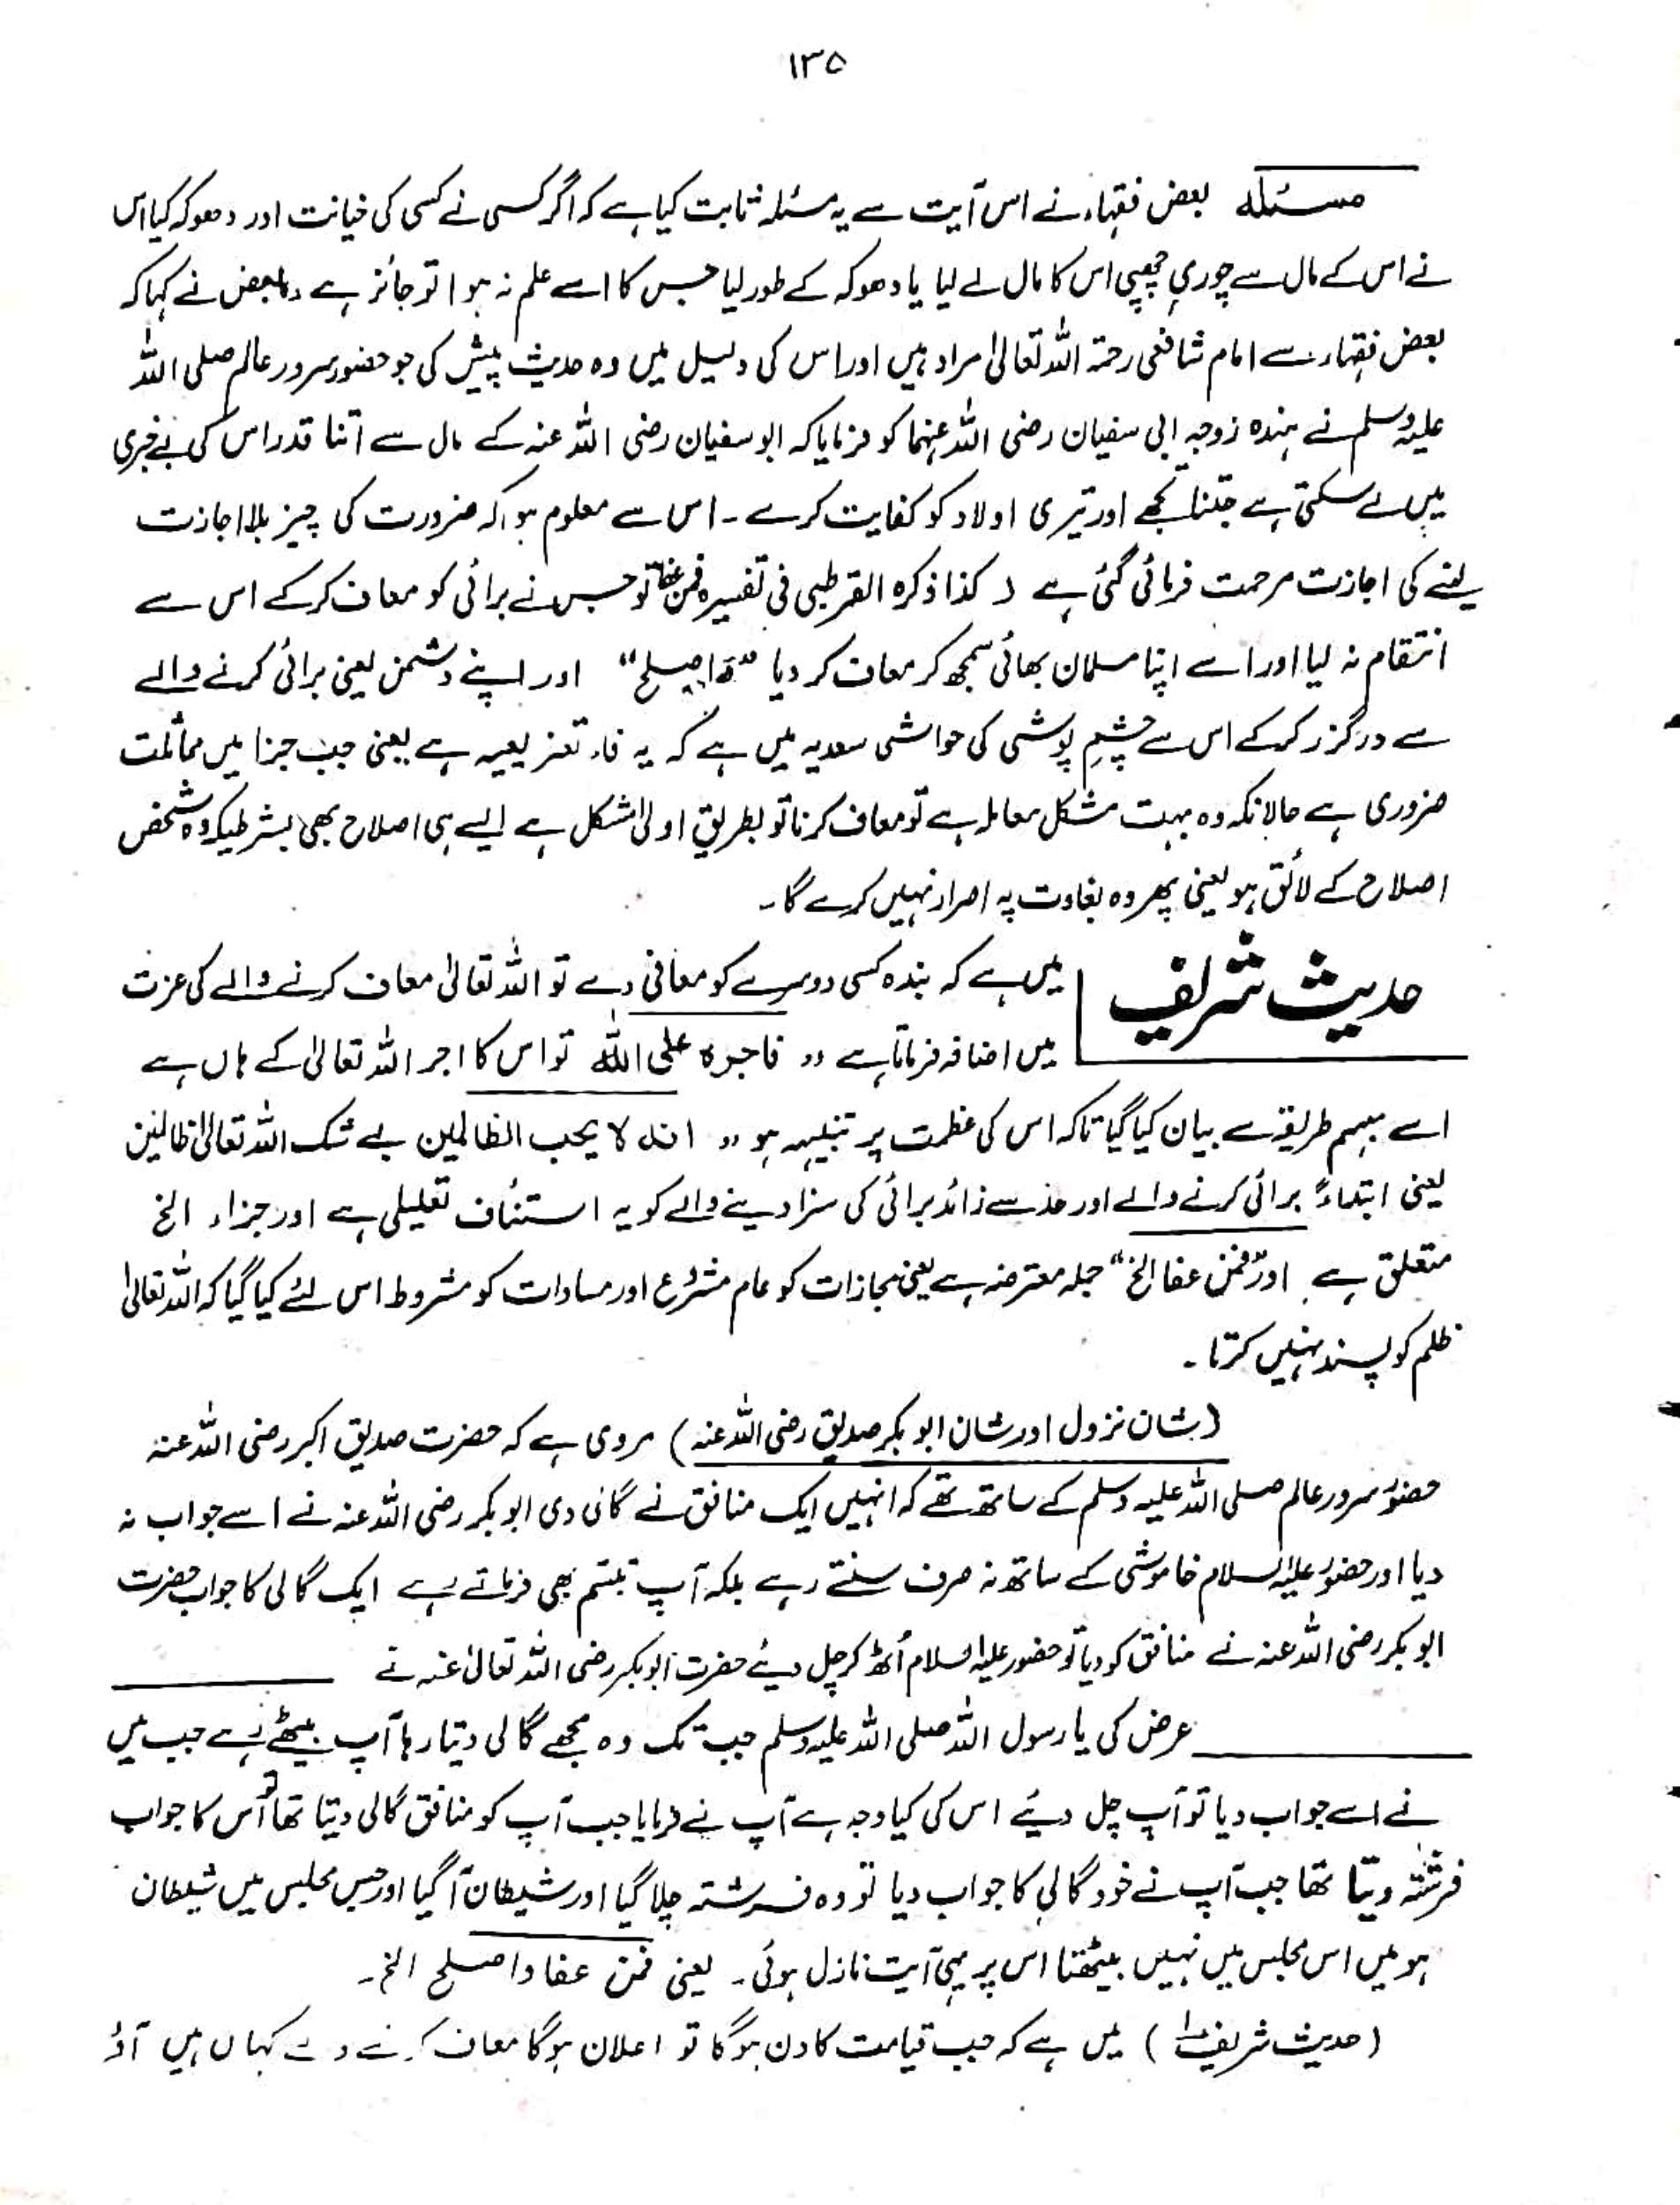 ۱۳۵
مسئلہ بعض فقہاء نے اس آیت سے یہ مسئلہ ثابت کیا ہے کہ اگر کسی نے کسی کی خیانت اور دھوکہ کیا اس
نے اس کے مال سے چوری چھپی اس کا مال لے لیا یا دھوکہ کے طور لیا جس کا اسے علم نہ ہوا تو جائز ہے بعض نے کہا کہ
بعض فقہاء سے امام شافعی رحمۃ اللہ تعالیٰ مراد ہیں اور اس کی دلیل میں وہ حدیث پیش کی جو حضور سرور عالم صلی اللہ
علیہ وسلم نے ہندہ زوجہ ابی سفیان رضی اللہ عنہما کو فرمایا کہ ابوسفیان رضی اللہ عنہ کے مال سے اتنا قدر اس کی بے خبری
میں لے سکتی ہے جتنا تجھے اور تیری اولاد کو کفایت کرے ۔ اس سے معلوم ہوا کہ ضرورت کی چیز بلا اجازت
لینے کی اجازت مرحمت فرمائی گئی ہے ( کذا ذکرہ القرطبی فی تفسیرہ فمن عفا تو جس نے برائی کو معاف کر کے اس سے
انتقام نہ لیا اور اسے اپنا مسلمان بھائی سمجھ کر معاف کر دیا ”و اصلح“ اور اپنے دشمن یعنی برائی کرنے والے
سے درگزر کر کے اس سے چشم پوشی کی حواشی سعدیہ میں ہے کہ یہ فاء تفریعیہ ہے یعنی جب جزا میں مماثلت
ضروری ہے حالانکہ وہ بہت مشکل معاملہ ہے تو معاف کرنا تو بطریق اولیٰ مشکل ہے ایسے ہی اصلاح بھی بشرطیکہ وہ شخص
اصلاح کے لائق ہو یعنی پھر وہ بغاوت پہ اصرار نہیں کرے گا ۔
حدیث شریف میں ہے کہ بندہ کسی دوسرے کو معافی دے تو اللہ تعالیٰ معاف کرنے والے کی عزت
میں اضافہ فرماتا ہے ” فاجرہ علی اللہ تو اس کا اجر اللہ تعالیٰ کے ہاں ہے
اسے مبہم طریقہ سے بیان کیا گیا تاکہ اس کی عظمت پر تنبیہہ ہو ” انہ لا یحب الظالمین بے شک اللہ تعالیٰ ظالمین
یعنی ابتداءً برائی کرنے والے اور حد سے زائد برائی کی سزا دینے والے کو یہ استئناف تعلیلی ہے اور جزاء الخ
متعلق ہے اور ”فمن عفا الخ“ جملہ معترضہ ہے یعنی مجازات کو عام مشروع اور مساوات کو مشروط اس لئے کیا گیا کہ اللہ تعالیٰ
ظلم کو پسند نہیں کرتا ۔
(شان نزول اور شان ابوبکر صدیق رضی اللہ عنہ) مروی ہے کہ حضرت صدیق اکبر رضی اللہ عنہ
حضور سرور عالم صلی اللہ علیہ وسلم کے ساتھ تھے کہ انہیں ایک منافق نے گالی دی ابوبکر رضی اللہ عنہ نے اسے جواب نہ
دیا اور حضور علیہ السلام خاموشی کے ساتھ نہ صرف سنتے رہے بلکہ آپ تبسّم بھی فرماتے رہے ایک گالی کا جواب حضرت
ابوبکر رضی اللہ عنہ نے منافق کو دیا تو حضور علیہ السلام اُٹھ کر چل دیئے حضرت ابوبکر رضی اللہ تعالیٰ عنہ نے
عرض کی یا رسول اللہ صلی اللہ علیہ وسلم جب تک وہ مجھے گالی دیتا رہا آپ بیٹھے رہے جب میں
نے اسے جواب دیا تو آپ چل دیئے اس کی کیا وجہ ہے آپ نے فرمایا جب آپ کو منافق گالی دیتا تھا تو اُس کا جواب
فرشتہ دیتا تھا جب آپ نے خود گالی کا جواب دیا تو وہ فرشتہ چلا گیا اور شیطان آ گیا اور جس مجلس میں شیطان
ہو میں اس مجلس میں نہیں بیٹھتا اس پر یہی آیت نازل ہوئی ۔ یعنی فمن عفا واصلح الخ ۔
(حدیث شریف) میں ہے کہ جب قیامت کا دن ہوگا تو اعلان ہوگا معاف کرنے والے کہاں ہیں آؤ